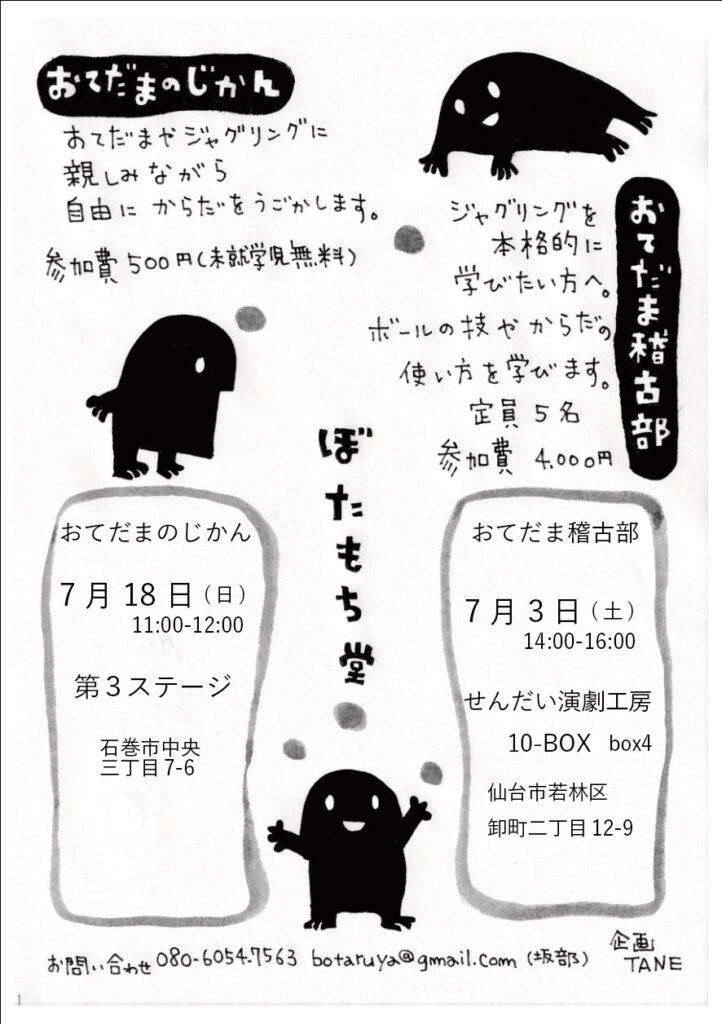 おてだまのじかん
おてだまやジャグリングに
親しみながら
自由に からだをうごかします。
参加費 500円(未就学児無料)
おてだま稽古部
ジャグリングを
本格的に
学びたい方へ。
ボールの技やからだの
使い方を学びます。
定員 5名
参加費 4.000円
ぼたもち堂
おてだまのじかん
7月18日(日)
11:00-12:00
第3ステージ
石巻市中央
三丁目7-6
おてだま稽古部
7月3日(土)
14:00-16:00
せんだい演劇工房
10-BOX box4
仙台市若林区
卸町二丁目12-9
お問い合わせ 080-6054-7563 botaruya@gmail.com (坂部)
企画
TANE